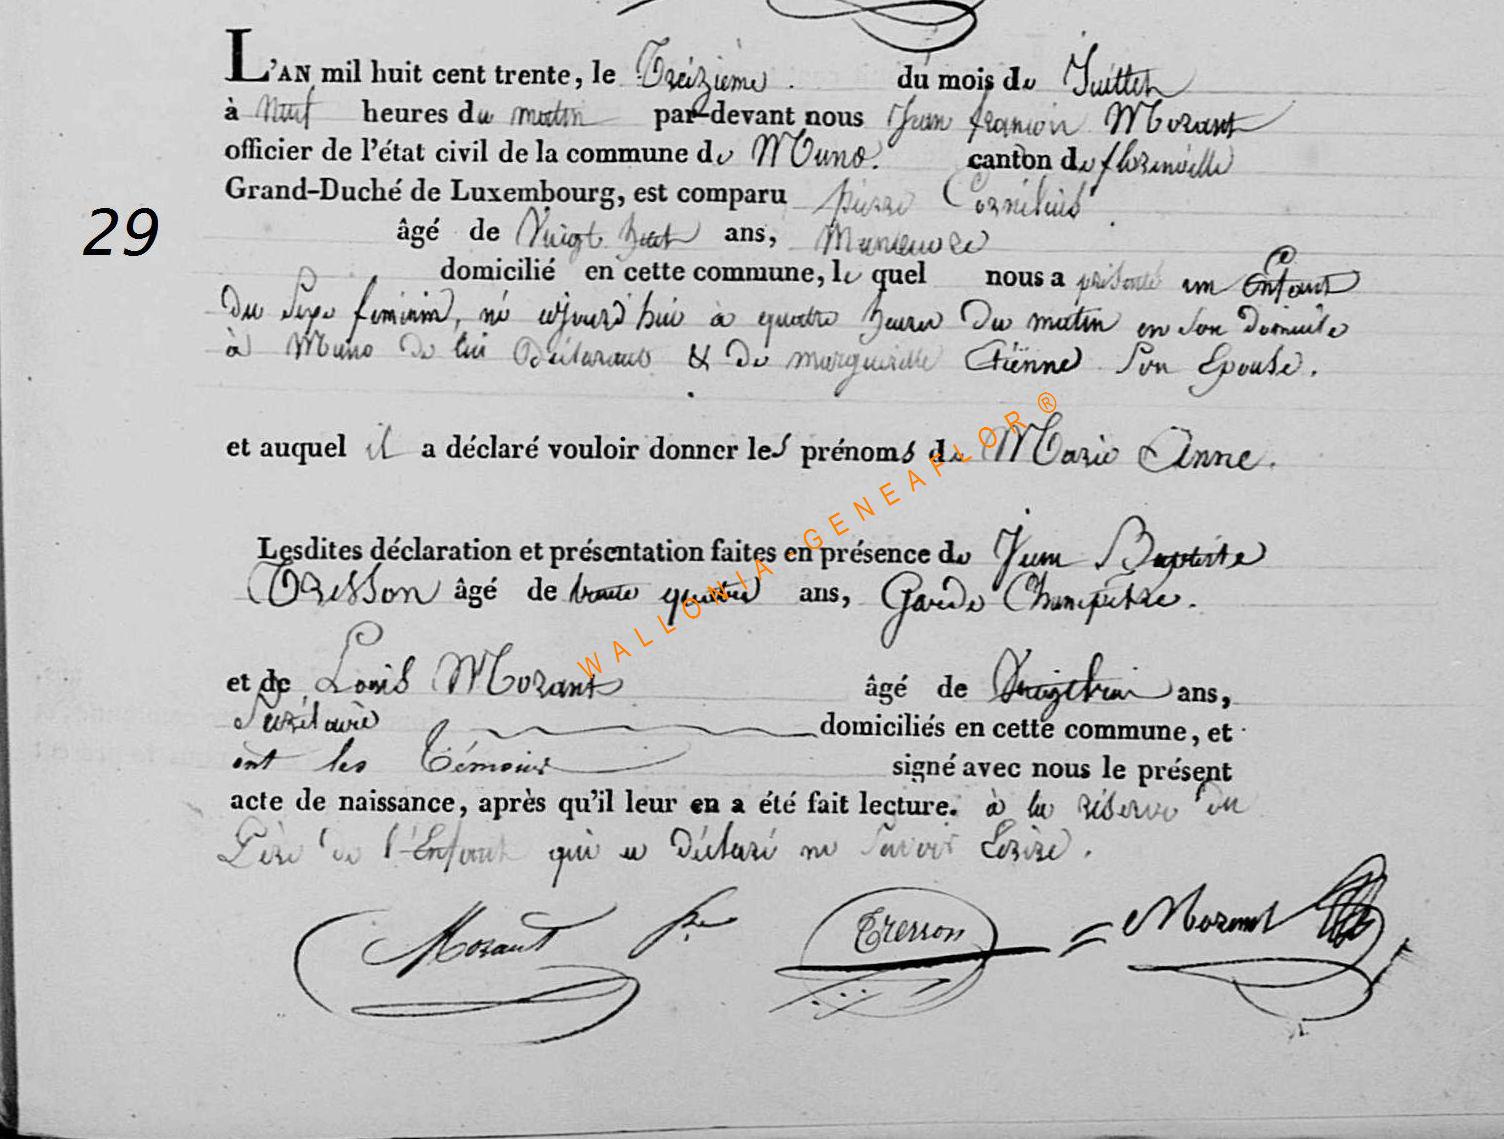 L'AN mil huit cent trente, le Treizieme du mois de Juillet
à Neuf heures du matin par-devant nous Jean françois Morant
officier de l'état civil de la commune de Muno. canton de florenville
Grand-Duché de Luxembourg, est comparu pierre Cornélius
29
âgé de Vingt huit ans, Manœuvre
domicilié en cette commune, le quel nous a présenté un Enfant
Du Sexe feminin, né aujourd'hui à quatre heures Du matin en son Domicile
à Muno de lui Déclarant & De marguerite Etiënne Son Epouse.
et auquel il a déclaré vouloir donner les prénoms de Marie Anne.
WALLONIA-GENEAFLOR ®
Lesdites déclaration et présentation faites en présence de Jean Baptiste
Tresson âgé de trente quatre ans, Garde Champetre.
et de Louis Morant âgé de ans,
Secrétaire domiciliés en cette commune, et
ont les Témoins signé avec nous le présent
acte de naissance, après qu'il leur en a été fait lecture. à la réserve du
Père de l'Enfant qui a Déclaré ne Savoir Ecrire.
Morant Tresson Morant